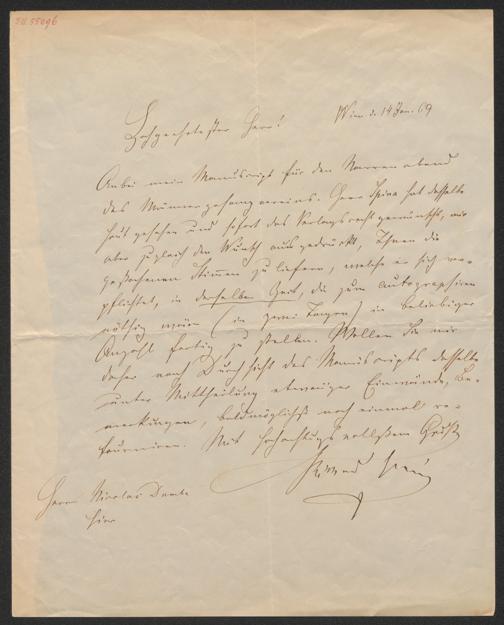 Wien d. 14 Jan. 69
Hochgeehrtester Herr!
Anbei mein Manuscript für den Narrenabend
des Männergesangvereins. Herr Spina hat dasselbe
gesehen und sofort das Verlagsrecht gewünscht, mir
aber zugleich den Wunsch ausgedrückt, Ihnen die
gestochenen Stimmen zu liefern, welche er sich ver-
pflichtet, in derselben Zeit, die zum autographiren
nöthig wäre (in zwei Tagen) in beliebiger
Anzahl fertig zu stellen. Wollen Sie mir
daher nach Durchsicht des Manuscripts dasselbe
unter Mittheilung etwaiger Einwände, Be-
merkungen, baldmöglichst noch einmal re-
tourniren. Mit hochachtungsvollstem Gruß
Herrn Nicolaus Dumba
hier